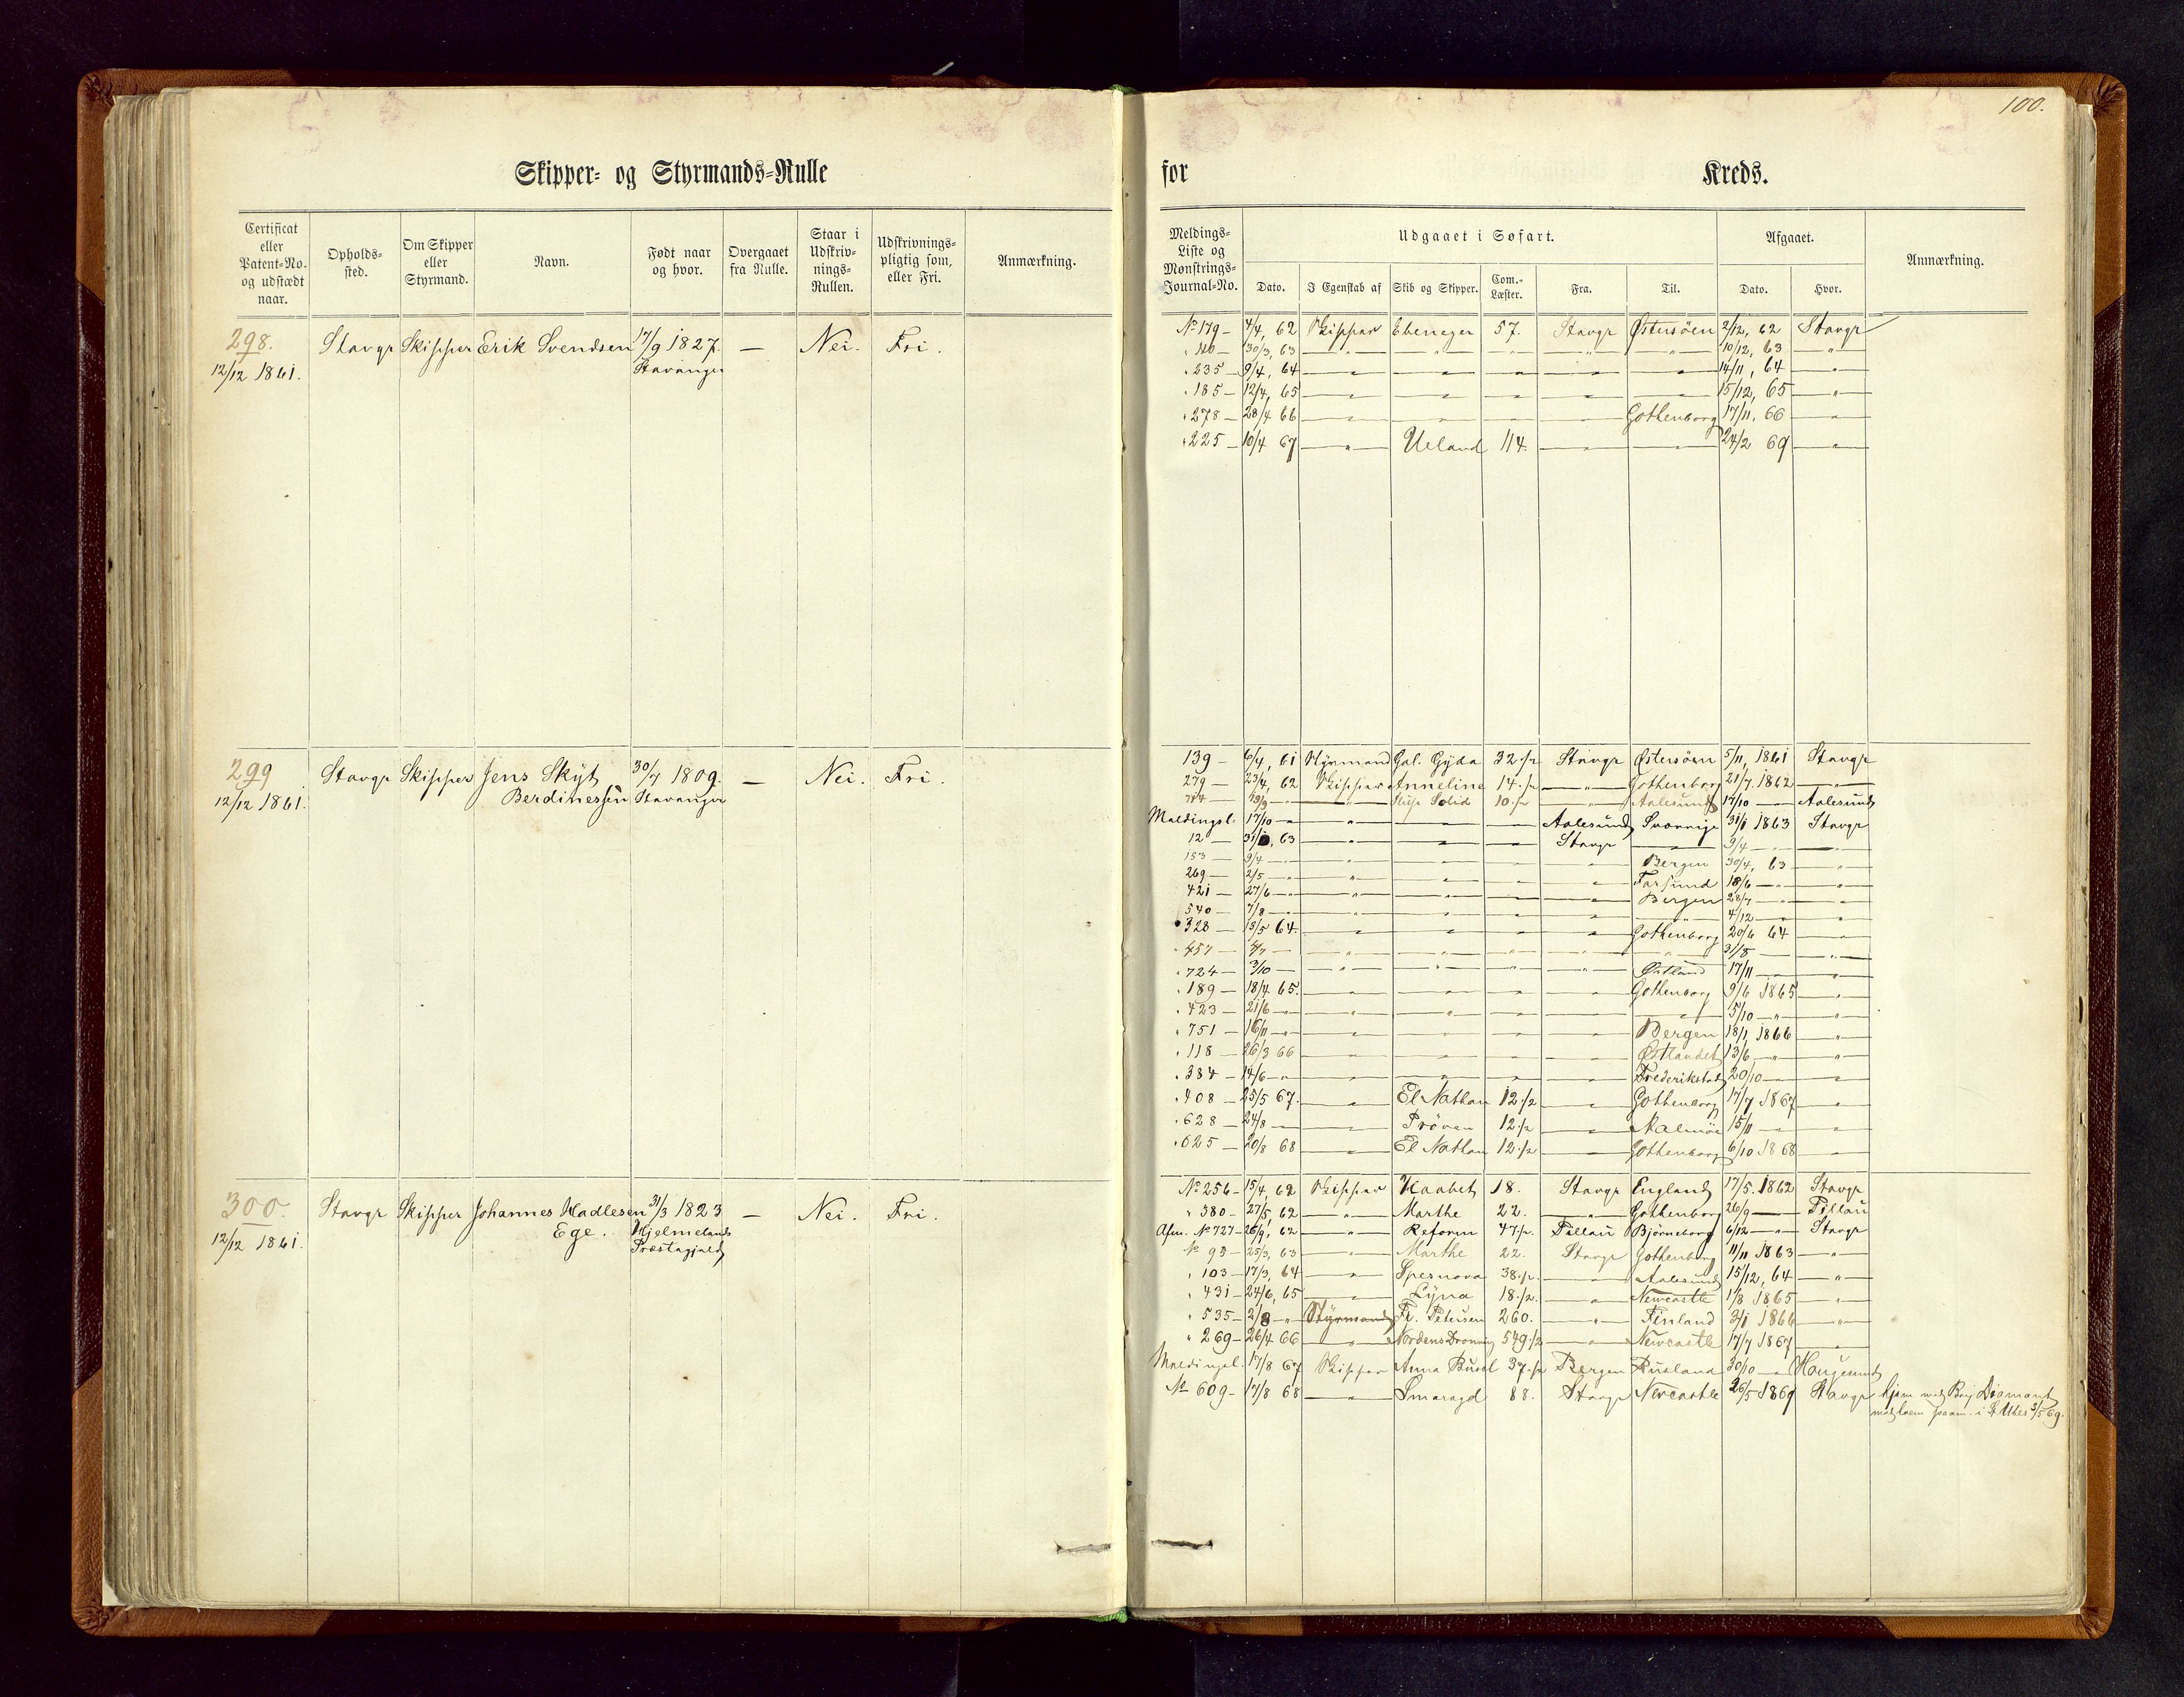 100.
Skipper- og Styrmands-Rulle for Kreds.
Certificat eller Patent-No. og udstædt naar.
Opholds-sted.
Om Skipper eller Styrmand.
Navn.
Født naar og hvor.
Overgaaet fra Rulle.
Staar i Udskriv-nings-Rullen.
Udskrivnings-pligtig som, eller Fri.
Anmærkning.
298. Stavgr Skipper Erik Svendsen 17/9 1827. — Nei. Fri.
12/12 1861. Stavanger
299 Stavgr Skipper Jens Skyt 30/7 1809. — Nei. Fri.
12/12 1861. Berdinessen Stavanger
300. Stavgr Skipper Johannes Hadlesen 31/3 1823 — Nei. Fri.
12/12 1861. Ege. Hjelmelands
Præstegjeld
Meldings-Liste og Mønstrings-Journal-No.
Udgaaet i Søfart.
Afgaaet.
Anmærkning.
Dato. I Egenskab af Skib og Skipper. Com.-Læster. Fra. Til. Dato. Hvor.
No 179 — 4/4, 62 Skipper Ebenezer 57. Stavgr Østersöen 2/12, 62 Stavgr
" 120 — 30/3, 63 — " — — " — — " — — " — — " — 10/12, 63 — " —
" 235 — 9/4, 64 — " — — " — — " — — " — — " — 14/11, 64 — " —
" 185 — 12/4, 65 — " — — " — — " — — " — — " — 15/12, 65 — " —
" 278 — 28/4 66 — " — — " — — " — — " — Gothenborg 17/11, 66 — " —
" 225 — 10/4 67 — " — Ueland 114. — " — — " — 24/2 69 — " —
139 — 6/4, 61 Styrmand Gal. Gyda 32 1/2 Stavgr Østersöen 5/11, 1861 Stavgr
279 — 23/4, 62 Skipper Anneline 14 1/2 — " — Gothenborg 21/7. 1862 — " —
19/9 — " — Solid 10 1/2 — " — Aalesund 17/10 — Aalesund
Meldingsl. 17/10 — " — — " — — Aalesund Sverrige 31/1 1863 Stavgr
12 — 31/1, 63 — " — — " — — " — Stavgr — " — 9/4 — — " —
153 — 9/4 — — " — — " — — " — — " — Bergen 30/4, 63 — " —
269 — 2/5 — " — " — — " — — " — — " — Farsund 18/6 — " — — " —
421 — 27/6 — " — " — — " — — " — — " — Bergen 28/7 — " — — " —
540 — 7/8 — — " — — " — — " — — " — — " — 4/12 — — " —
" 328 — 13/5 64. — " — — " — — " — — " — Gothenborg 20/6 64 — " —
" 457 — 4/7 — — " — — " — — " — — " — — " — 31/8 — — " —
" 724 — 3/10 — — " — — " — — " — — " — Østland 17/11 — — " —
" 189 — 18/4 65. — " — — " — — " — — " — Gothenborg 9/6 1865 — " —
" 423 — 21/6 — " — — " — — " — — " — — " — — " — 5/10 — " — — " —
" 751 — 16/11 — " — — " — — " — — " — — " — Bergen 18/1, 1866 — " —
" 118 — 26/3 66 — " — — " — — " — — " — Østlandet 13/6 — " — — " —
" 384 — 14/6 — " — — " — — " — — " — — " — Frederikstad 20/10 — — " —
" 408 — 25/5 67. — " — El Nathan 12 1/2 — " — Gothenborg 17/7 1867 — " —
" 628 — 24/8 — — " — Pröven 12 1/2 — " — Malmöe 15/11 — — " —
" 625 — 20/8 68 — " — El Nathan 12 1/2 — " — Gothenborg 6/10 1868 — " —
No 256 — 15/4, 62 Skipper Haabet 18. Stavgr England 17/5. 1862 Stavgr
" 380 — 27/5, 62 — " — Marthe 22. — " — Gothenborg 26/9 — Pillau
Afm. No 727 — 26/9, 62 — " — Reform 47 1/2 Pillau Bjørneborg 6/12 — " — Stavgr
No 95 — 25/3, 63 — " — Marthe 22. Stavgr Gothenborg 11/11 1863 — " —
" 103 — 17/3, 64 — " — Spesnova 38 1/2. — " — Aalesund 15/12, 64 — " —
" 431 — 24/6, 65 — " — Lyna 18 1/2. — " — Newcastle 1/8 1865 — " —
" 535 — 2/8 — " Styrmand Fr. Petersen 260. — " — Finland 3/1 1866 — " —
" 269 — 26/4 66 — " — Nordens Dronning 549 1/2 — " — Newcastle 17/7 1867 — " —
Meldingsl. 17/8 67 Skipper Anna 37 1/2 Bergen Rusland 30/10 — Haugesund
No 609 — 17/8 68 — " — Smaragd 88. Stavgr Newcastle 26/5 1869 Stavgr hjem med Brig Diamant
i St Ubes 3/5 69.